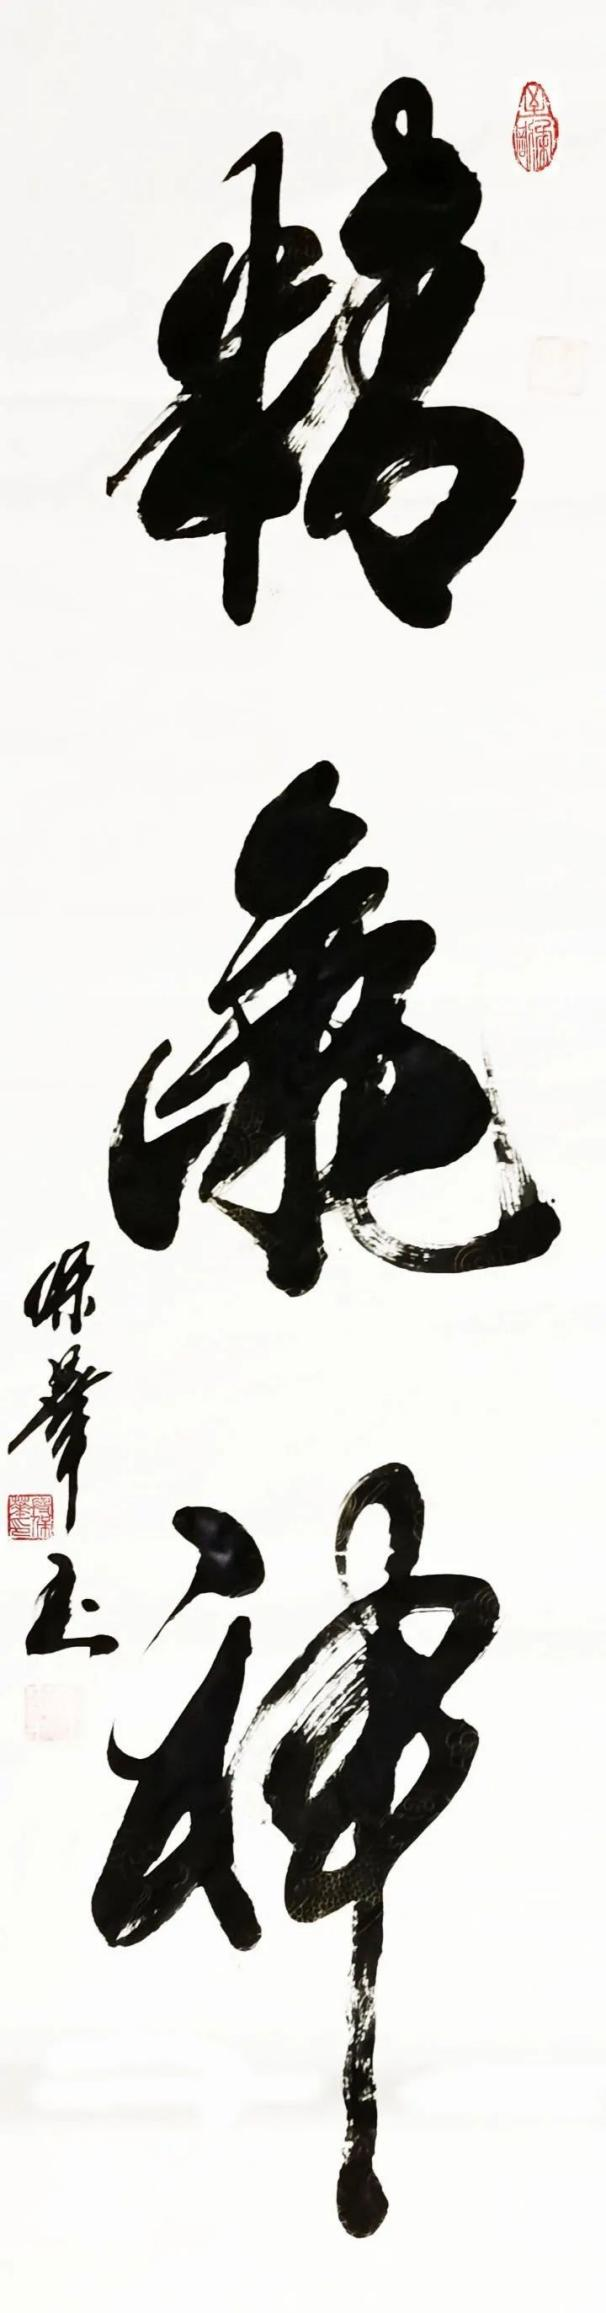 精氣神
保華